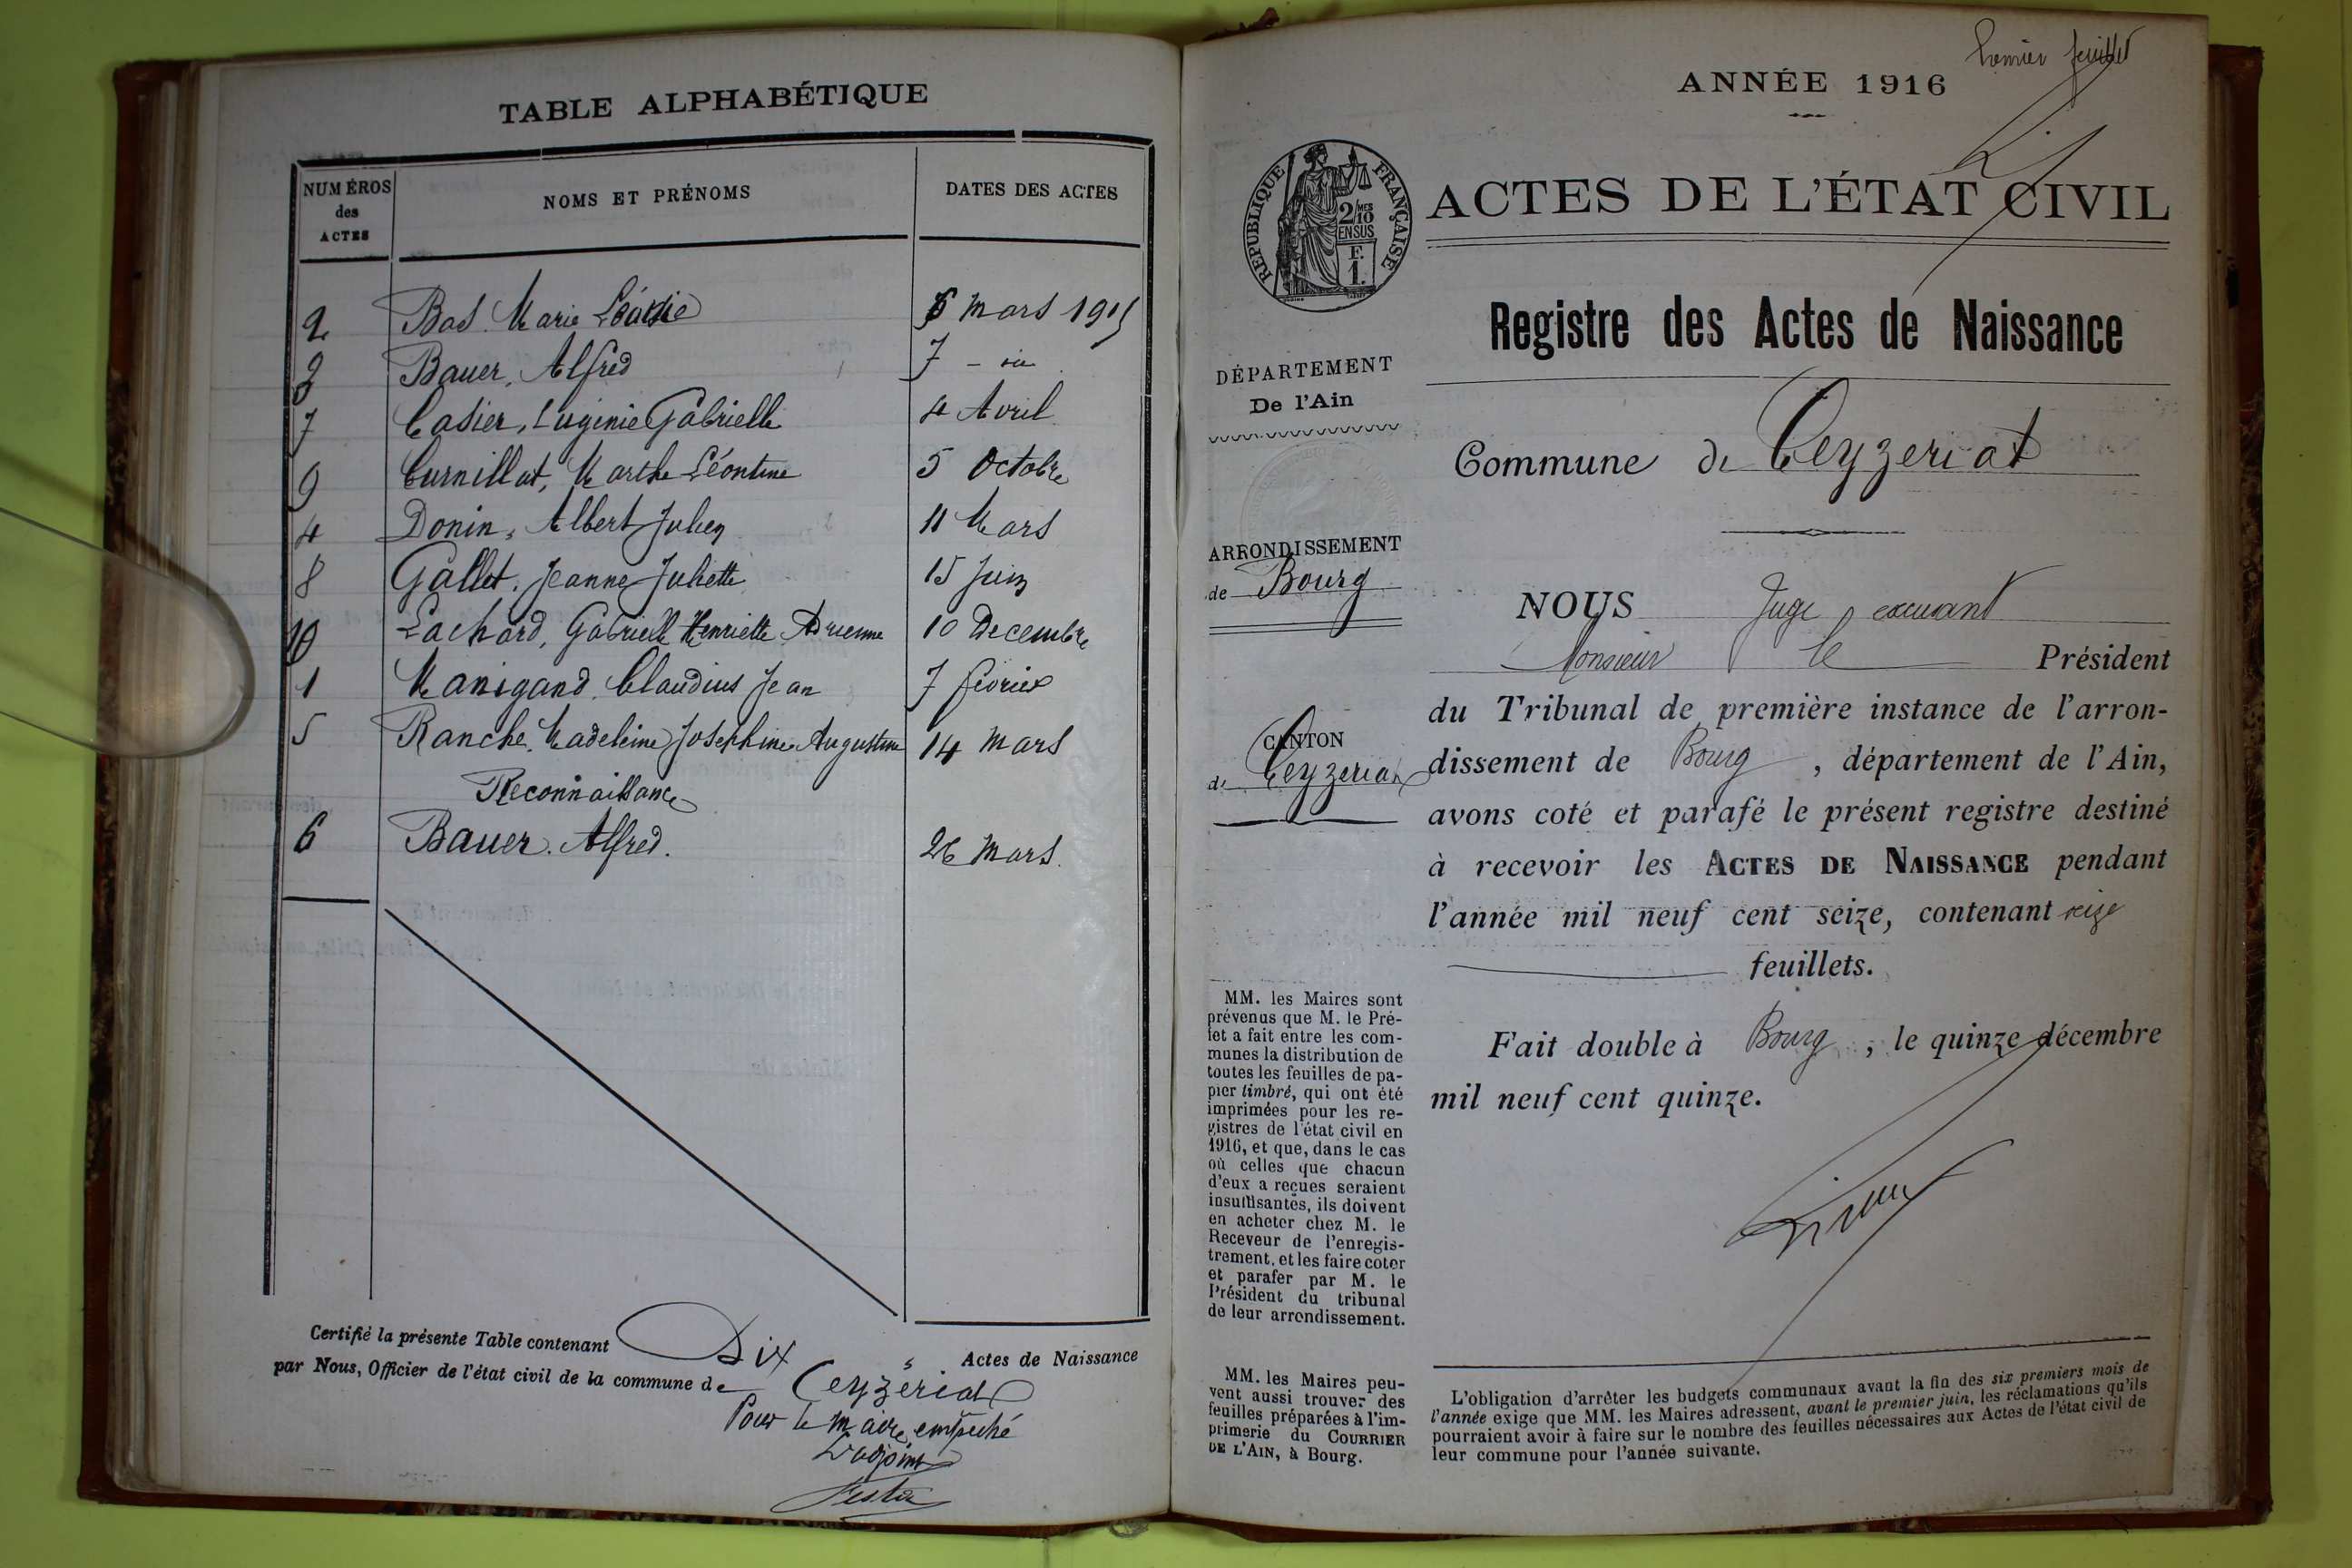 TABLE ALPHABÉTIQUE
NUMÉROS des ACTES
NOMS ET PRÉNOMS
DATES DES ACTES
2 Bas Marie 6 Mars 1915
3 Bauer, Alfred 7
7 Casier, Eugénie Gabrielle 4 Avril
9 Curnillat, Marthe Léontine 5 Octobre
4 Donin, Albert Julien 11 Mars
8 Gallet, Jeanne Juliette 15 Juin
10 Lachard, Gabrielle Henriette Adrienne 10 Decembre
1 Manigand, Claudius Jean 7 février
5 Ranche, Madeleine Josephine Augustine 14 Mars
Reconnaissance
6 Bauer. Alfred. 26 Mars.
Certifié la présente Table contenant Dix Actes de Naissance
par Nous, Officier de l'état civil de la commune de Ceyzériat
Pour le maire, empêché
L'adjoint
Premier feuillet
ANNÉE 1916
ACTES DE L'ÉTAT CIVIL
RÉPUBLIQUE FRANÇAISE
2/10 MES
EN SUS
F.
1.
Registre des Actes de Naissance
DÉPARTEMENT
De l'Ain
Commune de Ceyzeriat
ARRONDISSEMENT
de Bourg
CANTON
de Ceyzeriat
NOUS Juge
Monsieur le Président
du Tribunal de première instance de l'arron-
dissement de Bourg, département de l'Ain,
avons coté et parafé le présent registre destiné
à recevoir les ACTES DE NAISSANCE pendant
l'année mil neuf cent seize, contenant seize
feuillets.
Fait double à Bourg, le quinze décembre
mil neuf cent quinze.
MM. les Maires sont
prévenus que M. le Pré-
fet a fait entre les com-
munes la distribution de
toutes les feuilles de pa-
pier timbré, qui ont été
imprimées pour les re-
gistres de l'état civil en
1916, et que, dans le cas
où celles que chacun
d'eux a reçues seraient
insuffisantes, ils doivent
en acheter chez M. le
Receveur de l'enregis-
trement, et les faire coter
et parafer par M. le
Président du tribunal
de leur arrondissement.
MM. les Maires peu-
vent aussi trouver des
feuilles préparées à l'im-
primerie du COURRIER
DE L'AIN, à Bourg.
L'obligation d'arrêter les budgets communaux avant la fin des six premiers mois de
l'année exige que MM. les Maires adressent, avant le premier juin, les réclamations qu'ils
pourraient avoir à faire sur le nombre des feuilles nécessaires aux Actes de l'état civil de
leur commune pour l'année suivante.